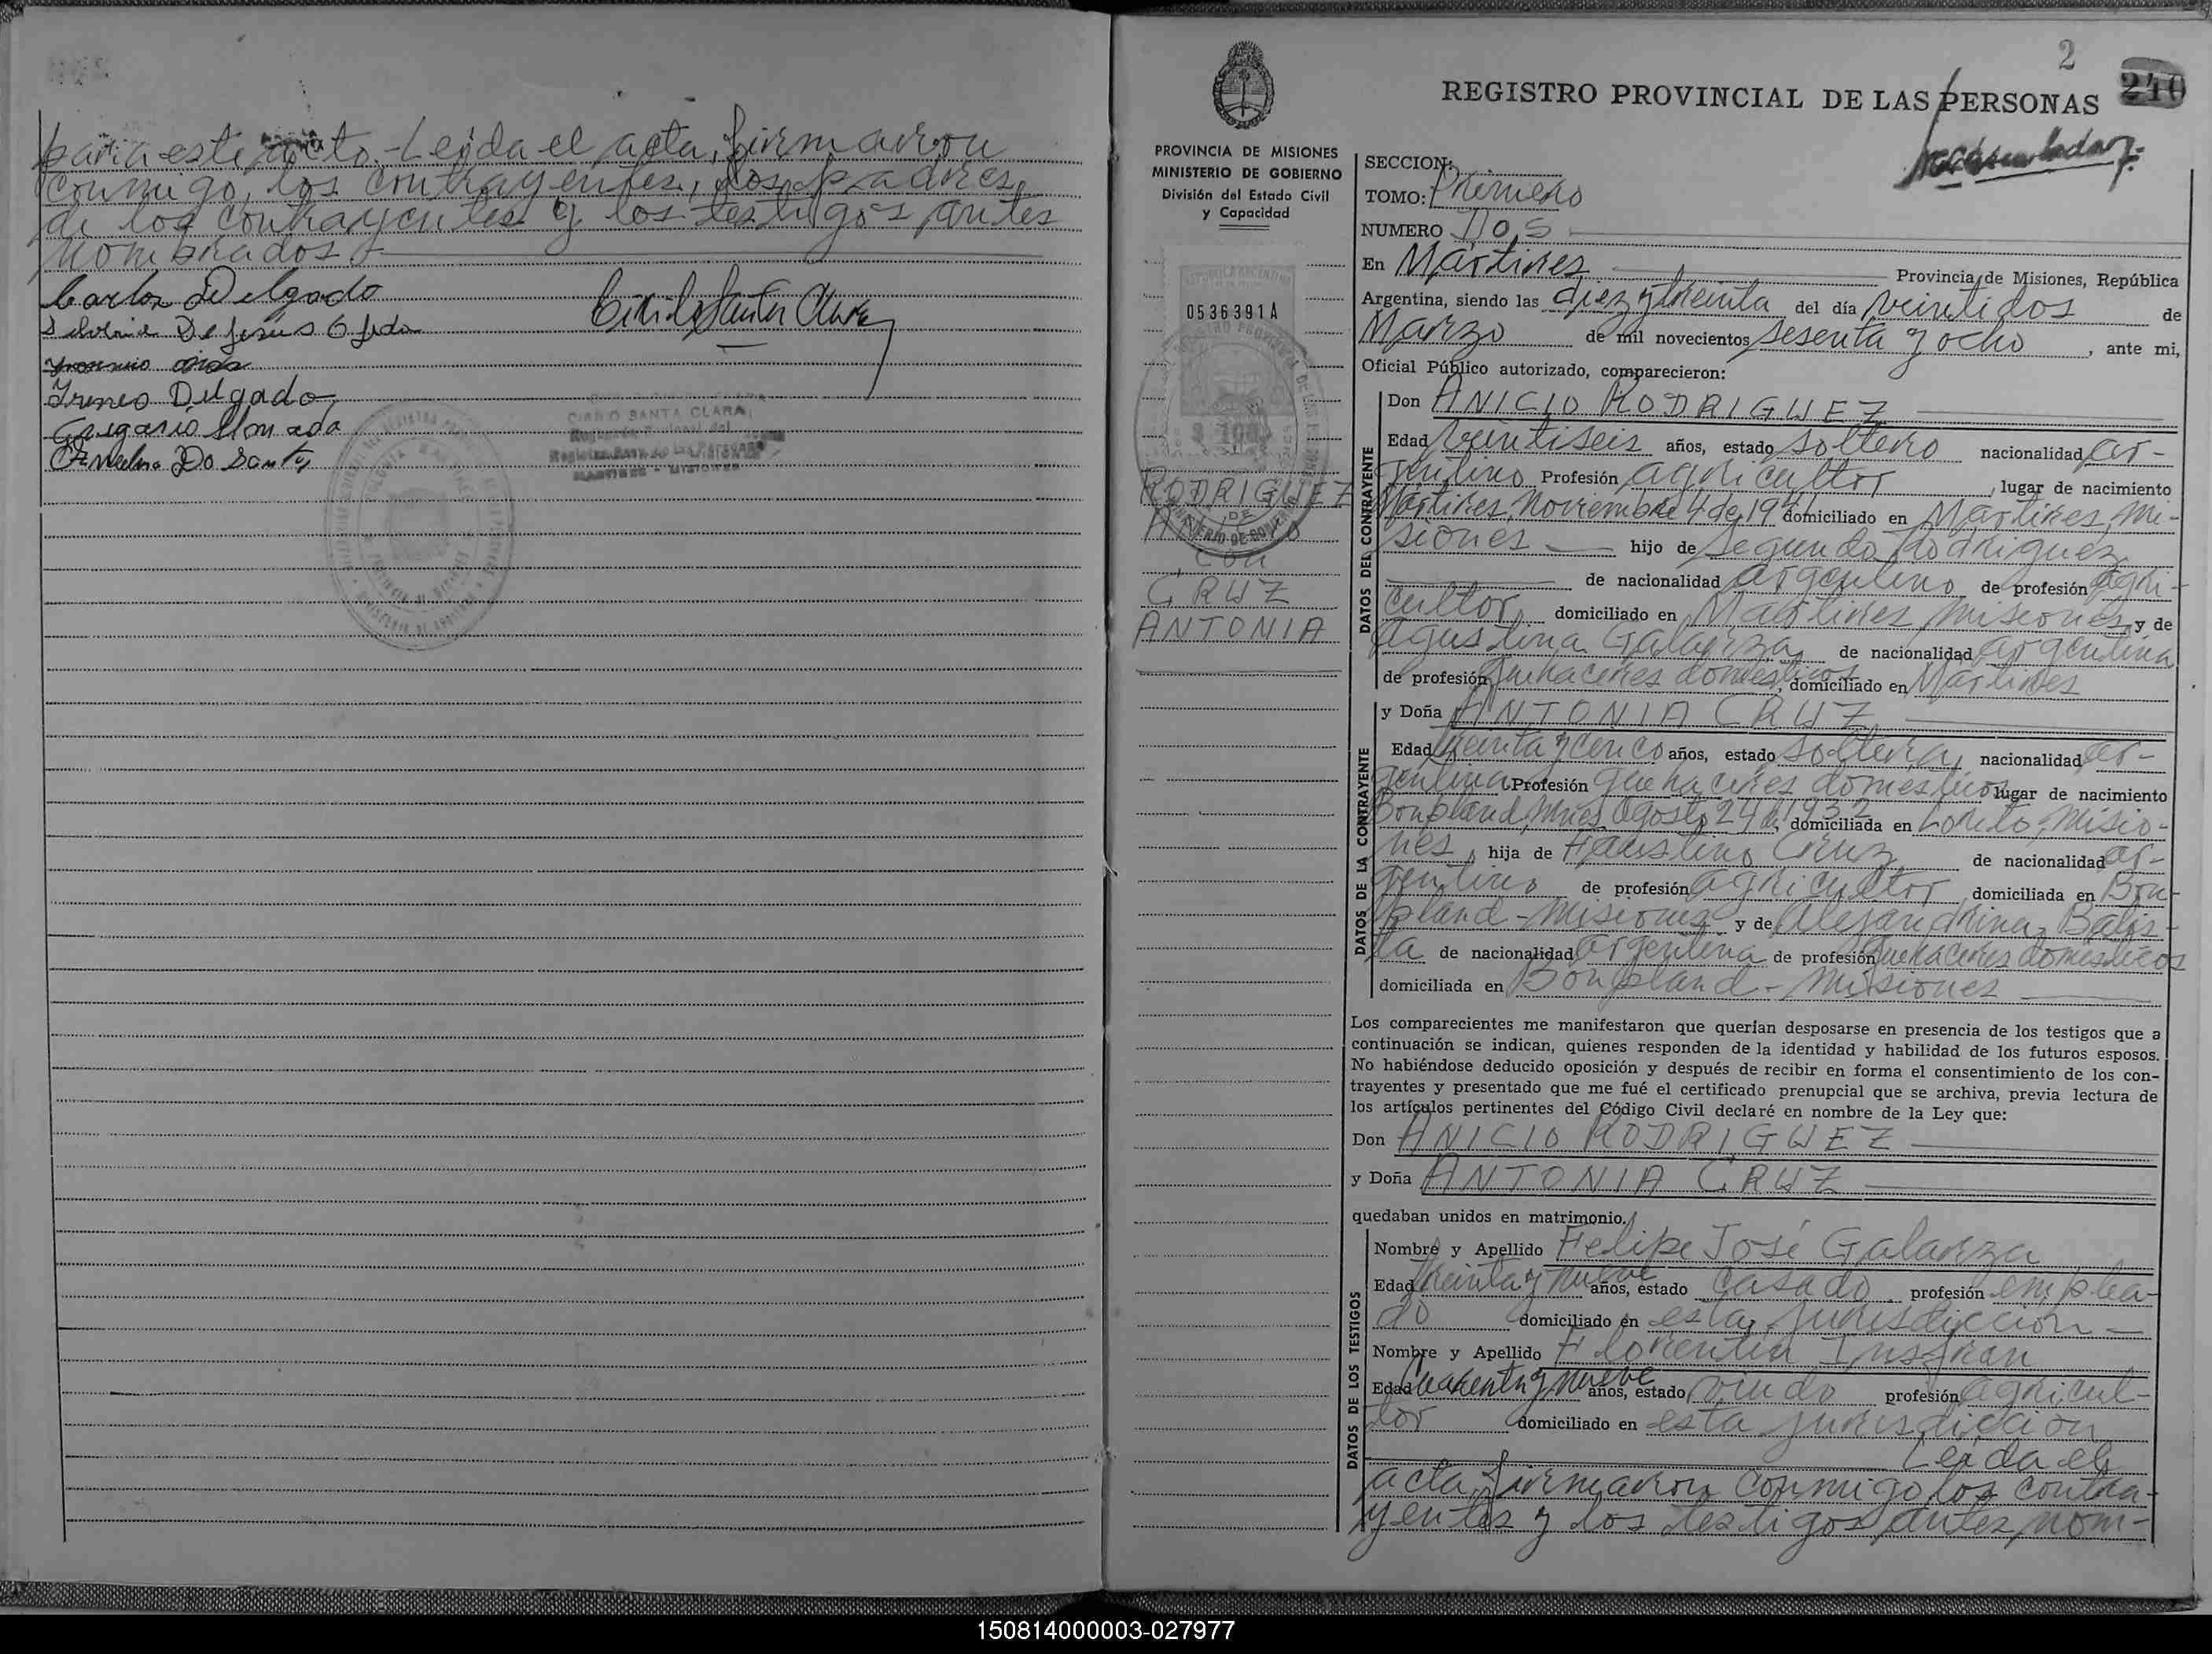 para este acto.- Leída el acta, firmaron
conmigo, los contrayentes, los padres
de los contrayentes y los testigos antes
nombrados.-
Carlos Delgado
De Jesús
Cirilo Santa Clara
Ireneo Delgado
CIRILO SANTA CLARA
Gregorio Almada
MARTIRES - MISIONES
2
240
REGISTRO PROVINCIAL DE LAS PERSONAS
PROVINCIA DE MISIONES
MINISTERIO DE GOBIERNO
División del Estado Civil
y Capacidad
0536391A
RODRIGUEZ
CON
CRUZ
ANTONIA
SECCION:
TOMO: Primero
NUMERO Dos
En Mártires Provincia de Misiones, República
Argentina, siendo las diez y treinta del día veintidos de
Marzo de mil novecientos sesenta y ocho, ante mi,
Oficial Público autorizado, comparecieron:
DATOS DEL CONTRAYENTE
Don ANICIO RODRIGUEZ
Edad veintiseis años, estado soltero nacionalidad ar-
gentino Profesión agricultor, lugar de nacimiento
Mártires, Noviembre 4 de 1941 domiciliado en Mártires, Mi-
siones hijo de Segundo Rodriguez
de nacionalidad argentino de profesión agri-
cultor, domiciliado en Mártires Misiones, y de
Agustina Galarza, de nacionalidad argentina
de profesión quehaceres domésticos, domiciliado en Mártires
DATOS DE LA CONTRAYENTE
y Doña ANTONIA CRUZ
Edad treinta y cinco años, estado soltera, nacionalidad ar-
gentina Profesión quehaceres domésticos lugar de nacimiento
Bonpland, Mnes, Agosto 24 de 1932, domiciliada en Loreto, Misio-
nes, hija de Faustino Cruz de nacionalidad ar-
gentino de profesión agricultor, domiciliada en Bon-
pland - Misiones y de Alejandrina Batis-
ta de nacionalidad argentina de profesión quehaceres domésticos
domiciliada en Bonpland - Misiones
Los comparecientes me manifestaron que querían desposarse en presencia de los testigos que a
continuación se indican, quienes responden de la identidad y habilidad de los futuros esposos.
No habiéndose deducido oposición y después de recibir en forma el consentimiento de los con-
trayentes y presentado que me fué el certificado prenupcial que se archiva, previa lectura de
los artículos pertinentes del Código Civil declaré en nombre de la Ley que:
Don ANICIO RODRIGUEZ
y Doña ANTONIA CRUZ
quedaban unidos en matrimonio.
DATOS DE LOS TESTIGOS
Nombre y Apellido Felipe José Galarza
Edad treinta y nueve años, estado casado, profesión emplea-
do domiciliado en esta jurisdicción -
Nombre y Apellido Florentin Insfran
Edad cuarenta y nueve años, estado viudo profesión agricul-
tor domiciliado en esta jurisdicción
Leída el
acta, firmaron conmigo los contra-
yentes y los testigos antes nom-
150814000003-027977